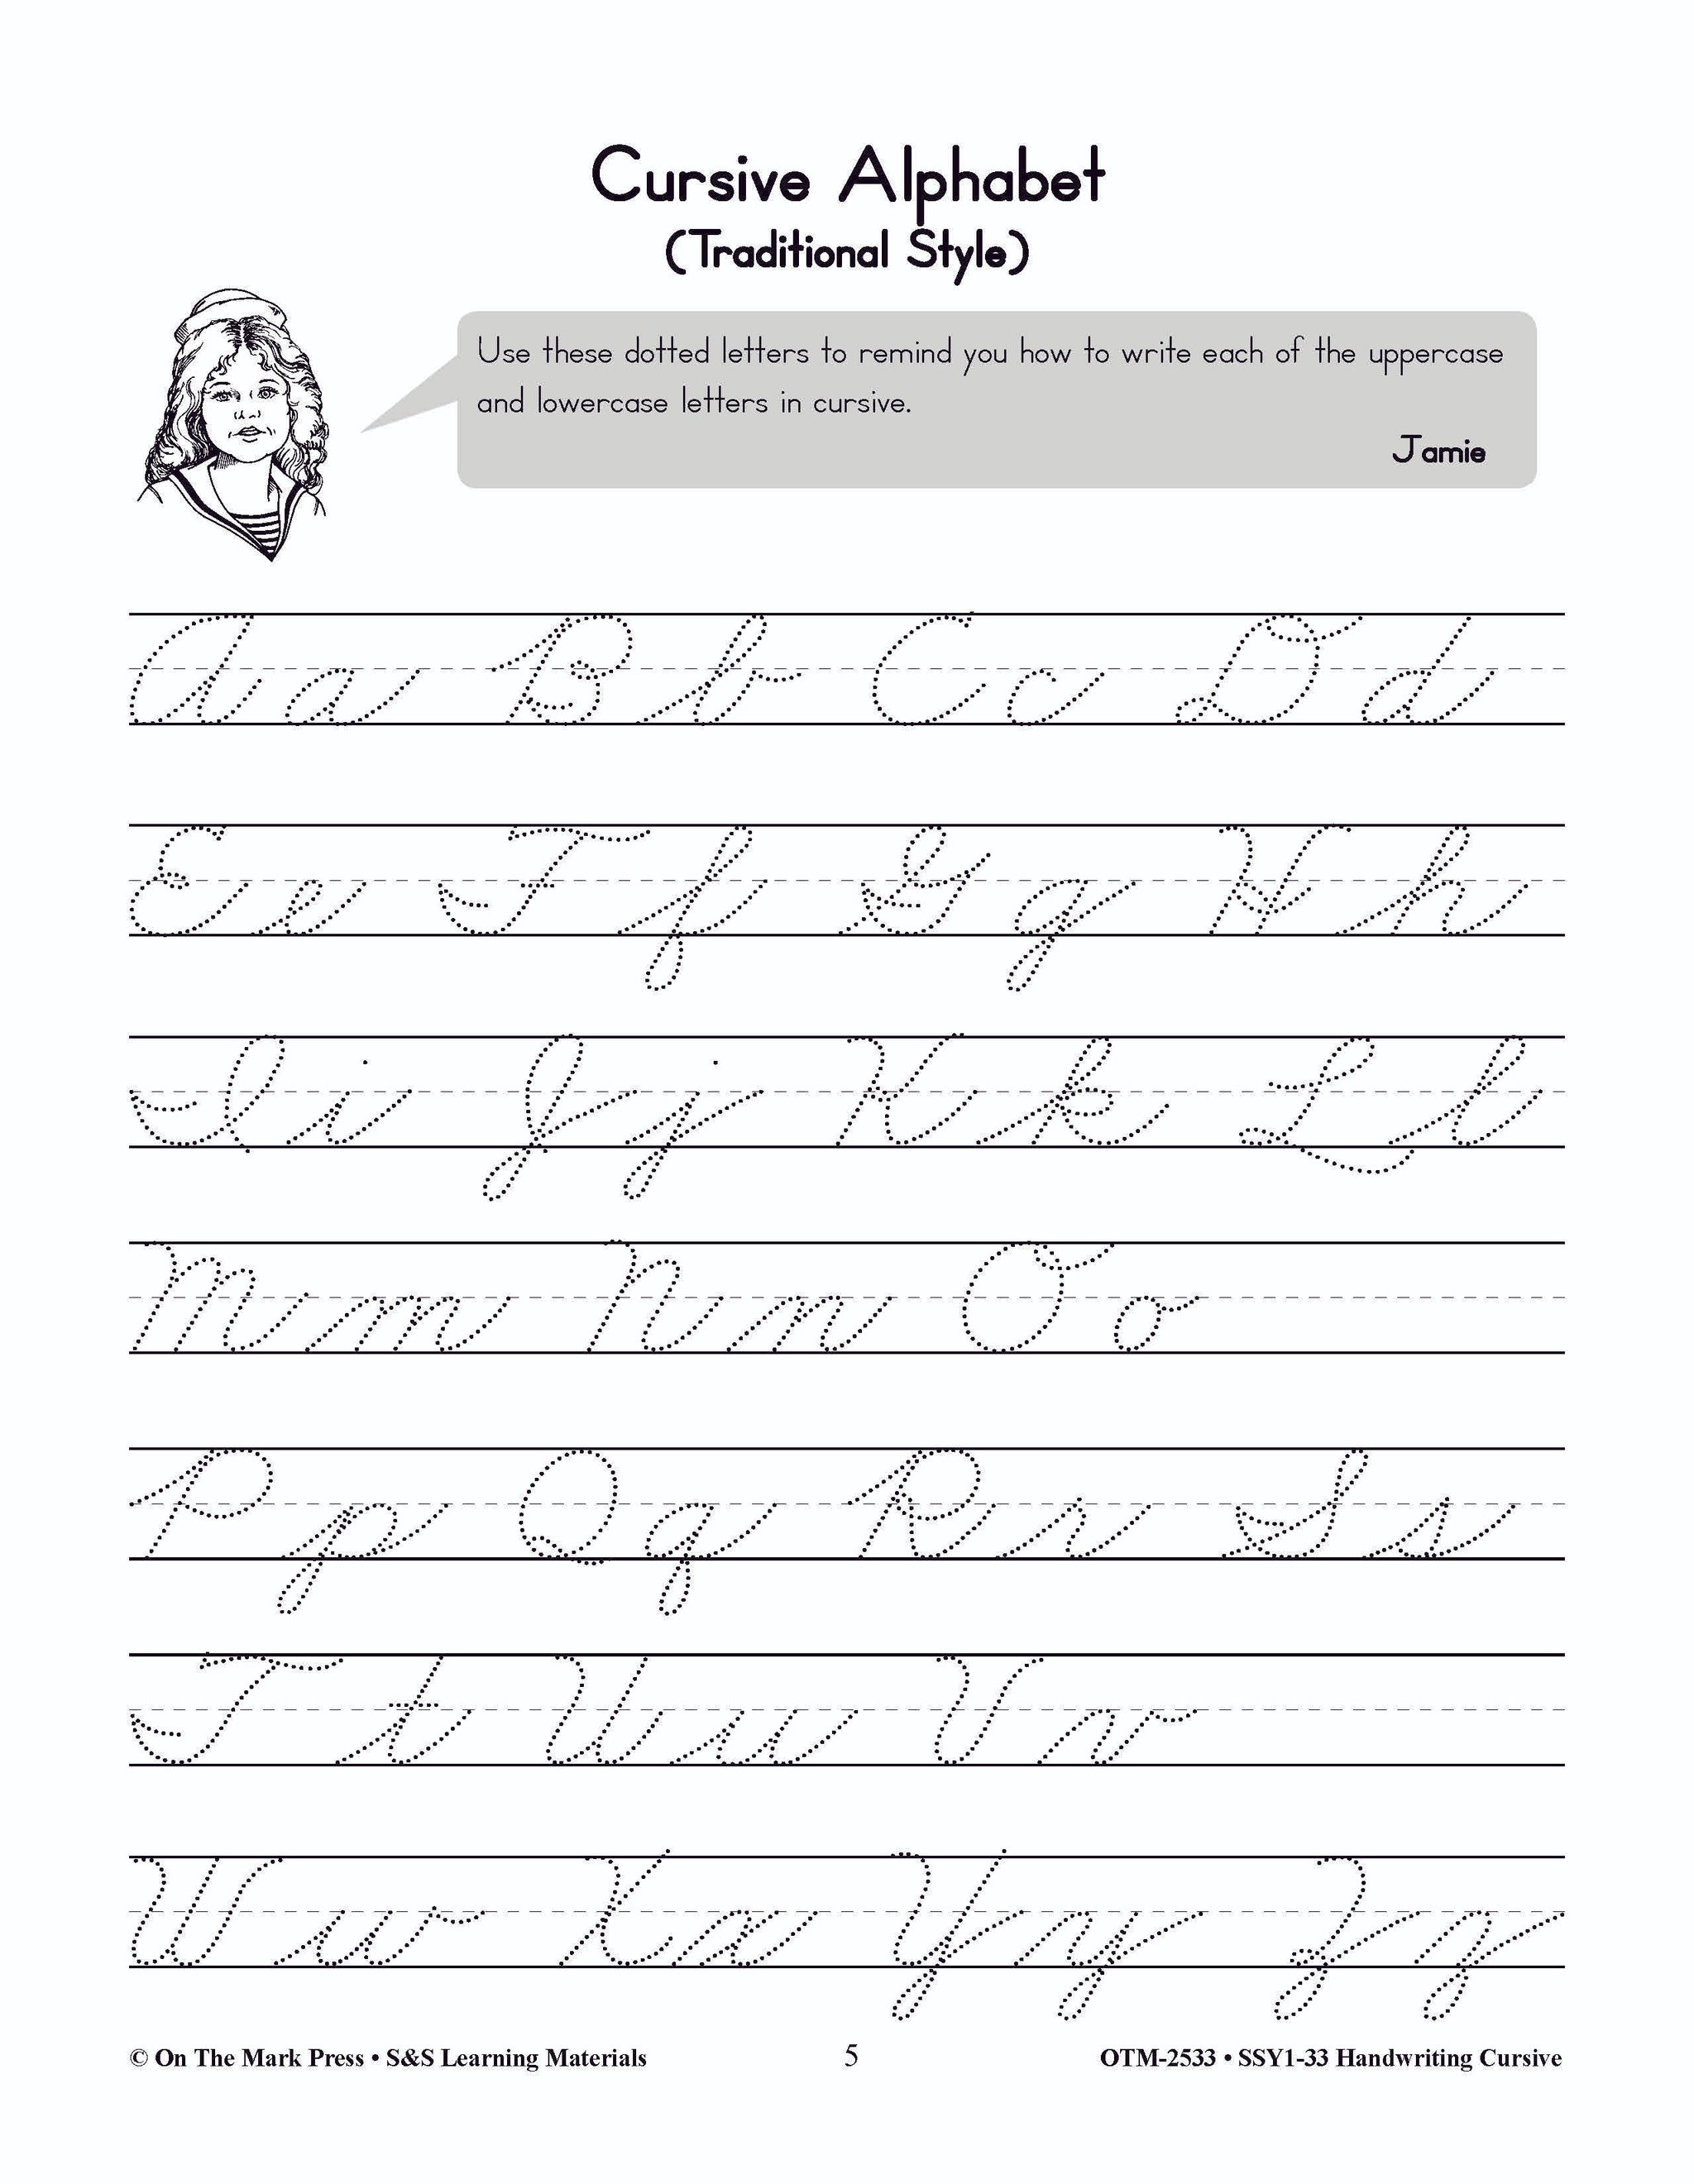 Cursive Alphabet
(Traditional Style)
Use these dotted letters to remind you how to write each of the uppercase
and lowercase letters in cursive.
Jamie
A a B b C c D d
E e F f G g H h
I i J j K k L l
M m N n O o
P p Q q R r S s
T t U u V v
W w X x Y y Z z
© On The Mark Press • S&S Learning Materials 5 OTM-2533 • SSY1-33 Handwriting Cursive